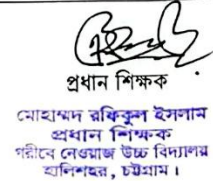 প্রধান শিক্ষক
মোহাম্মদ রফিকুল ইসলাম
প্রধান শিক্ষক
গরীবে নেওয়াজ উচ্চ বিদ্যালয়
হালিশহর, চট্টগ্রাম।